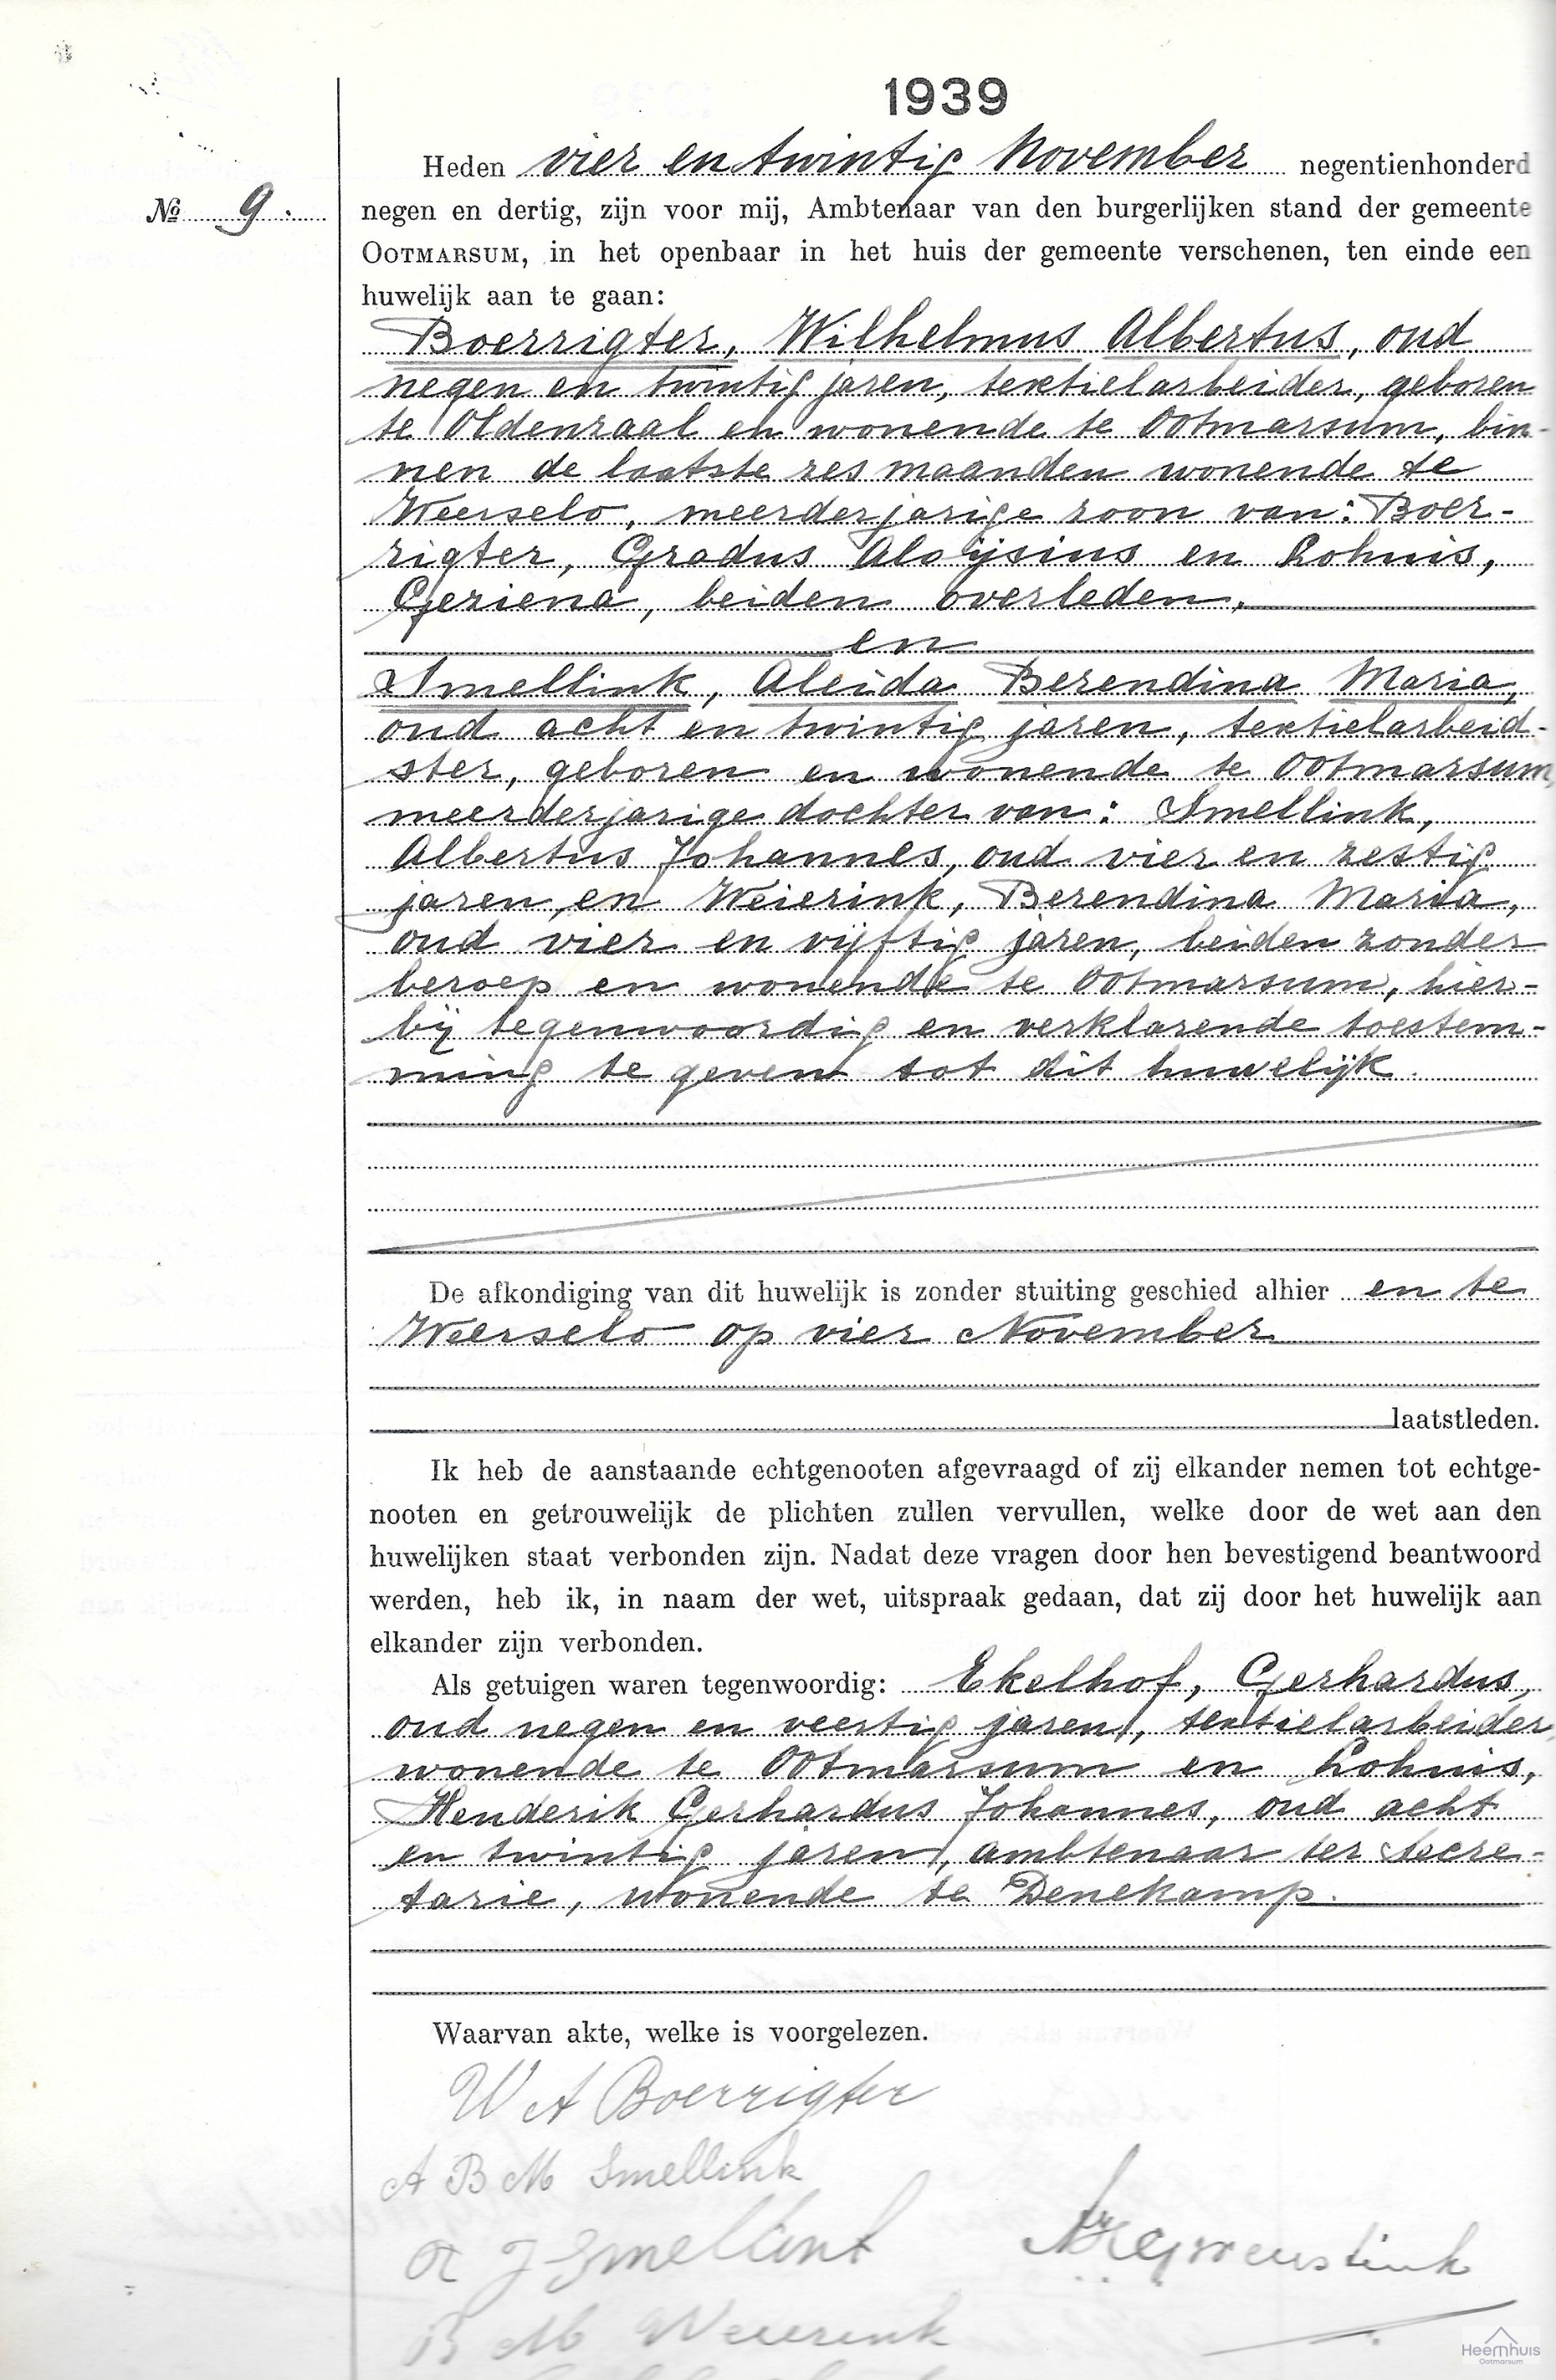 1939
Heden vier en twintig November negentienhonderd
№ 9.
negen en dertig, zijn voor mij, Ambtenaar van den burgerlijken stand der gemeente
OOTMARSUM, in het openbaar in het huis der gemeente verschenen, ten einde een
huwelijk aan te gaan:
Boerrigter, Wilhelmus Albertus, oud
negen en twintig jaren, textielarbeider, geboren
te Oldenzaal en wonende te Ootmarsum, bin-
nen de laatste zes maanden wonende te
Weerselo, meerderjarige zoon van: Boer-
rigter, Gradus Aloijsius en Lohuis,
Geziena, beiden overleden,
en
Smellink, Aleida Berendina Maria,
oud acht en twintig jaren, textielarbeid-
ster, geboren en wonende te Ootmarsum,
meerderjarige dochter van: Smellink,
Albertus Johannes, oud vier en zestig
jaren, en Weierink, Berendina Maria,
oud vier en vijftig jaren, beiden zonder
beroep en wonende te Ootmarsum, hier-
bij tegenwoordig en verklarende toestem-
ming te geven tot dit huwelijk.
De afkondiging van dit huwelijk is zonder stuiting geschied alhier en te
Weerselo op vier November
laatstleden.
Ik heb de aanstaande echtgenooten afgevraagd of zij elkander nemen tot echtge-
nooten en getrouwelijk de plichten zullen vervullen, welke door de wet aan den
huwelijken staat verbonden zijn. Nadat deze vragen door hen bevestigend beantwoord
werden, heb ik, in naam der wet, uitspraak gedaan, dat zij door het huwelijk aan
elkander zijn verbonden.
Als getuigen waren tegenwoordig: Ekelhof, Gerhardus,
oud negen en veertig jaren, textielarbeider,
wonende te Ootmarsum en Lohuis,
Henderik Gerhardus Johannes, oud acht
en twintig jaren, ambtenaar ter secre-
tarie, wonende te Denekamp.
Waarvan akte, welke is voorgelezen.
W A Boerrigter
A B M Smellink
A J Smellink
B M Weierink
Heemhuis
Ootmarsum